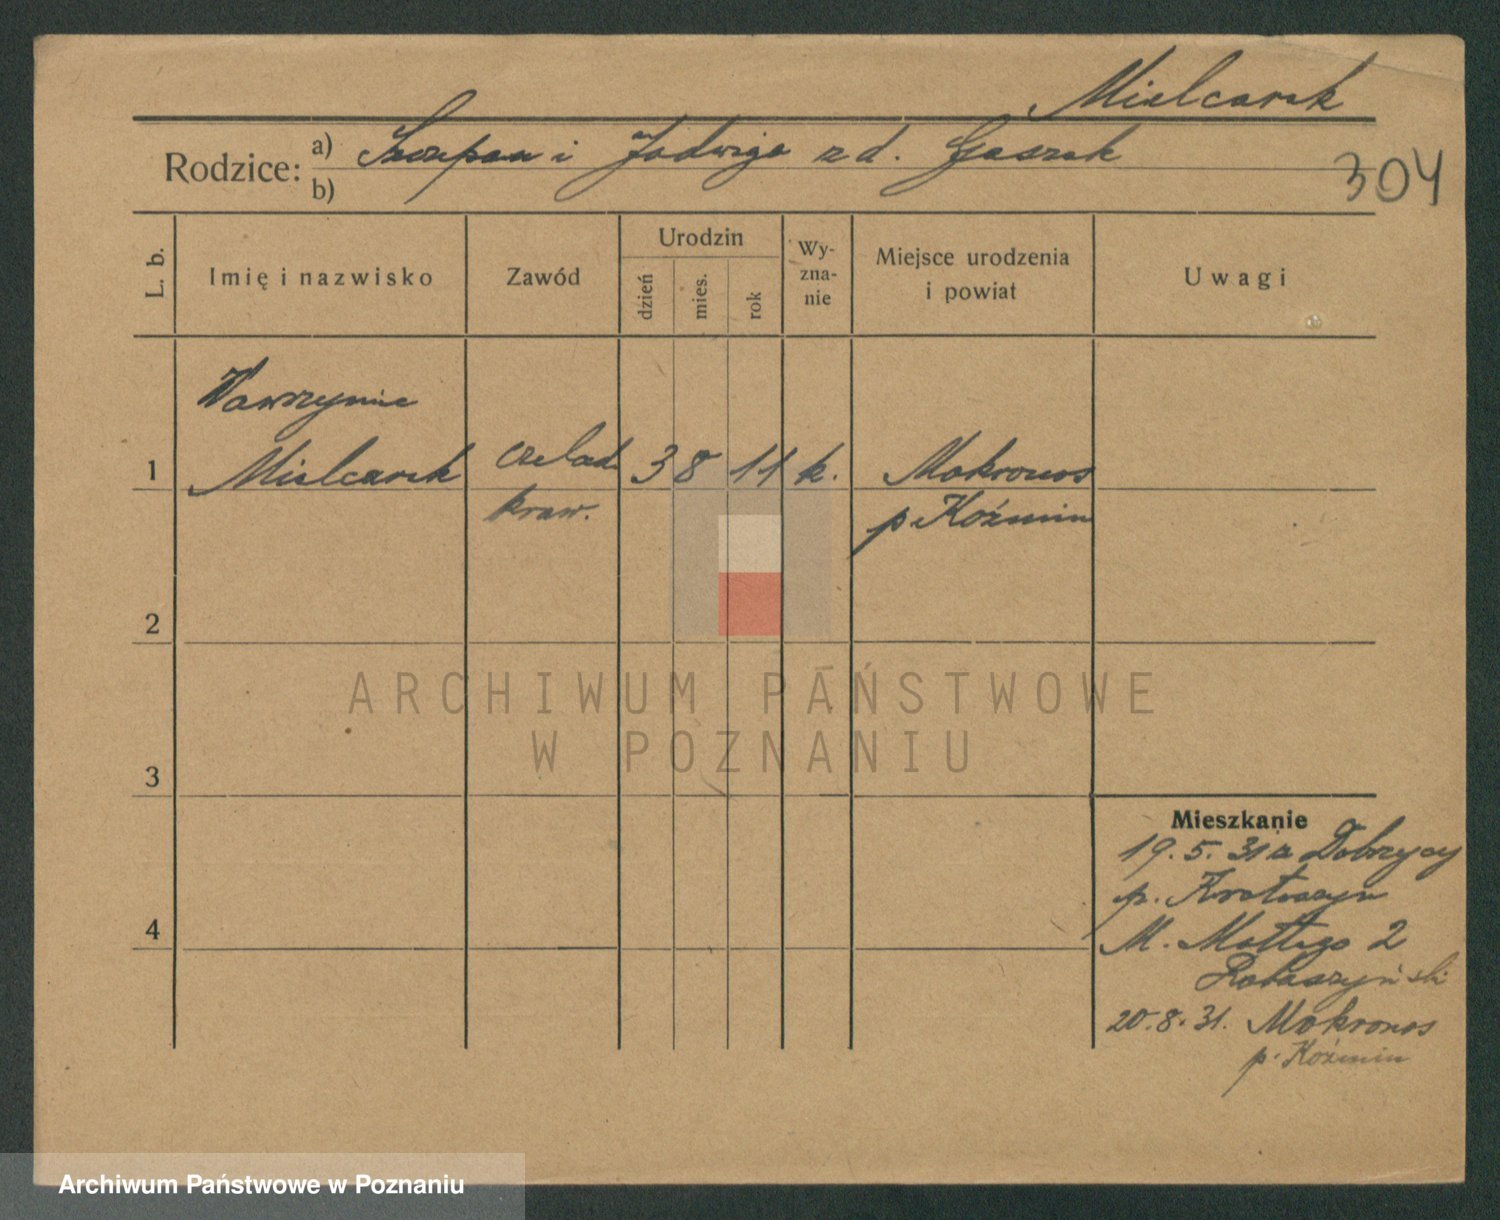 Mielcarek
Rodzice: a) Szczepan i Jadwiga z d. Gaszek
b)
304
L. b.
Imię i nazwisko
Zawód
Urodzin
dzień
mies.
rok
Wy-
zna-
nie
Miejsce urodzenia
i powiat
Uwagi
Wawrzynie
1 Mielcarek czelad. 3 8 11 k. Mokronos
kraw. p. Koźmin
2
ARCHIWUM PAŃSTWOWE
W POZNANIU
3
Mieszkanie
19. 5. 31 z Dobrzycy
p. Krotoszyn
4
M. Małtego 2
Rataszyński
20. 8. 31. Mokronos
p. Koźmin
Archiwum Państwowe w Poznaniu